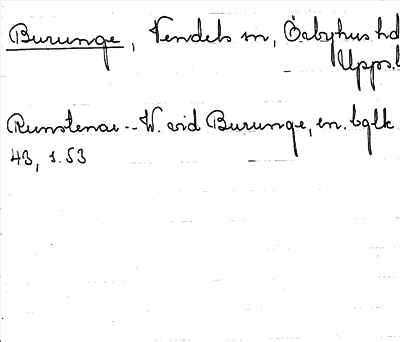 Burunge, Vendels sn, Örbyhus hd
Uppsl
Runstenar -- W. vid Burunge, en. bglk
43, s. 53